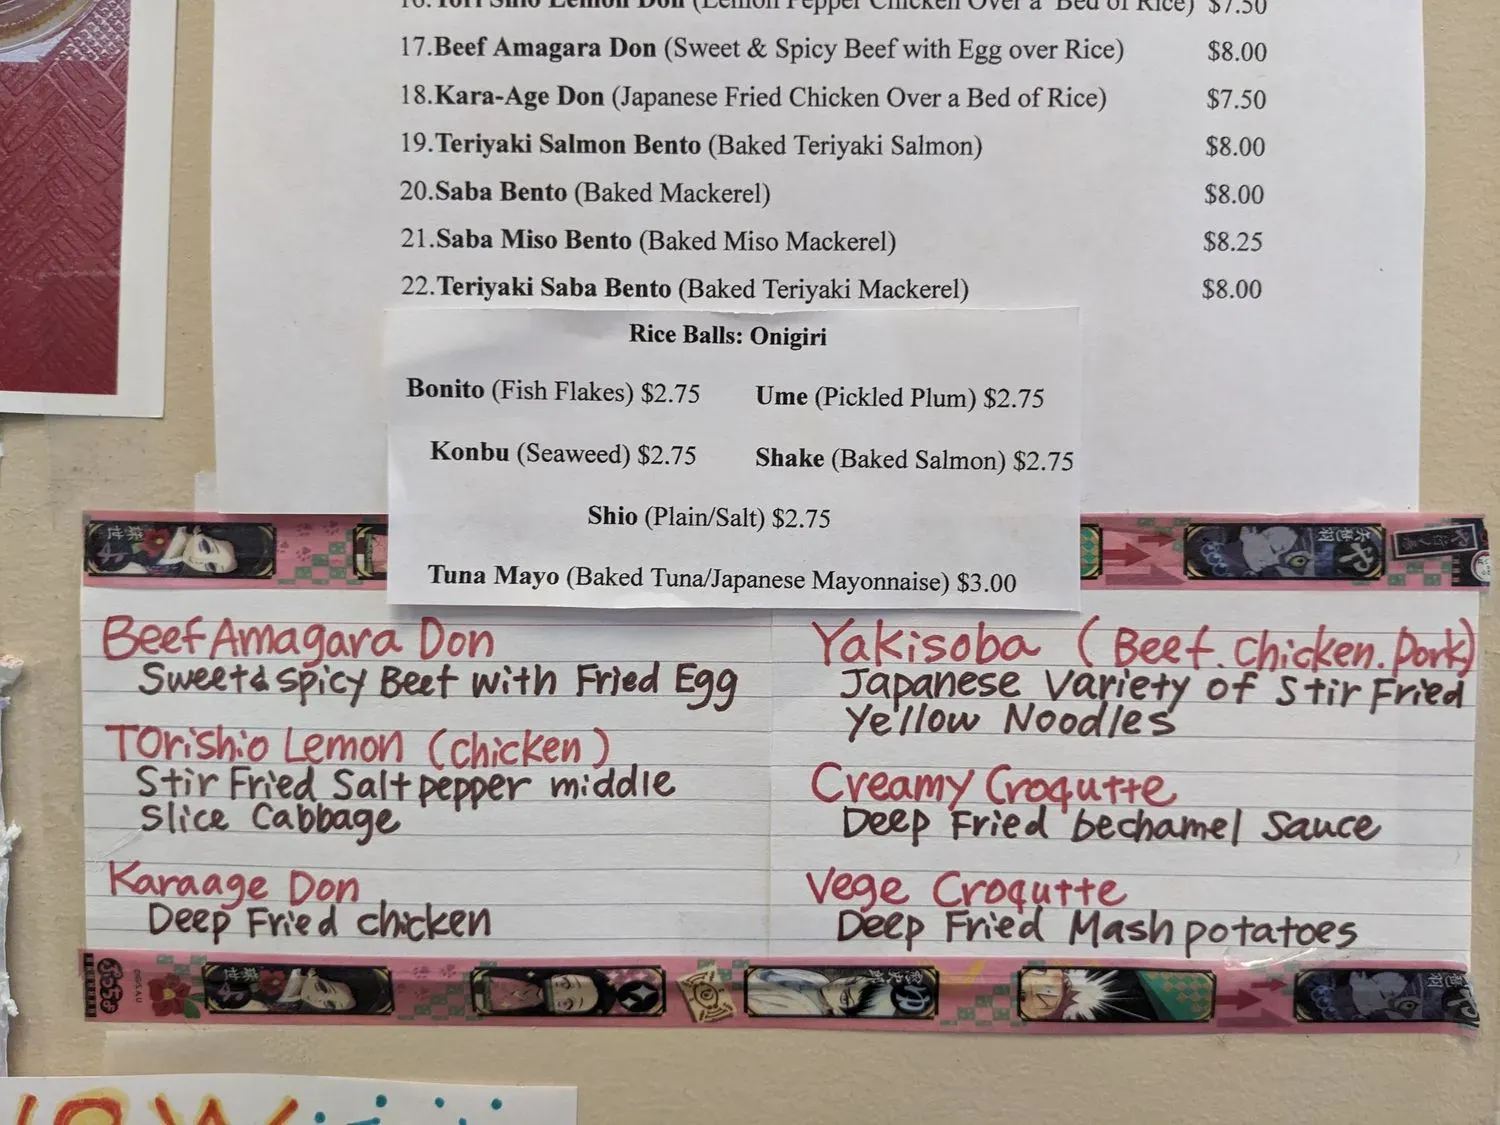 16.Tori Shio Lemon Don (Lemon Pepper Chicken Over a Bed of Rice) $7.50
17.Beef Amagara Don (Sweet & Spicy Beef with Egg over Rice) $8.00
18.Kara-Age Don (Japanese Fried Chicken Over a Bed of Rice) $7.50
19.Teriyaki Salmon Bento (Baked Teriyaki Salmon) $8.00
20.Saba Bento (Baked Mackerel) $8.00
21.Saba Miso Bento (Baked Miso Mackerel) $8.25
22.Teriyaki Saba Bento (Baked Teriyaki Mackerel) $8.00
Rice Balls: Onigiri
Bonito (Fish Flakes) $2.75
Ume (Pickled Plum) $2.75
Konbu (Seaweed) $2.75
Shake (Baked Salmon) $2.75
Shio (Plain/Salt) $2.75
Tuna Mayo (Baked Tuna/Japanese Mayonnaise) $3.00
Beef Amagara Don
Sweet & Spicy Beef with Fried Egg
Torishio Lemon (chicken)
Stir Fried Salt pepper middle
slice Cabbage
Karaage Don
Deep Fried chicken
Yakisoba (Beef. Chicken. Pork)
Japanese Variety of Stir Fried
Yellow Noodles
Creamy Croqutte
Deep Fried bechamel Sauce
Vege Croqutte
Deep Fried Mash potatoes